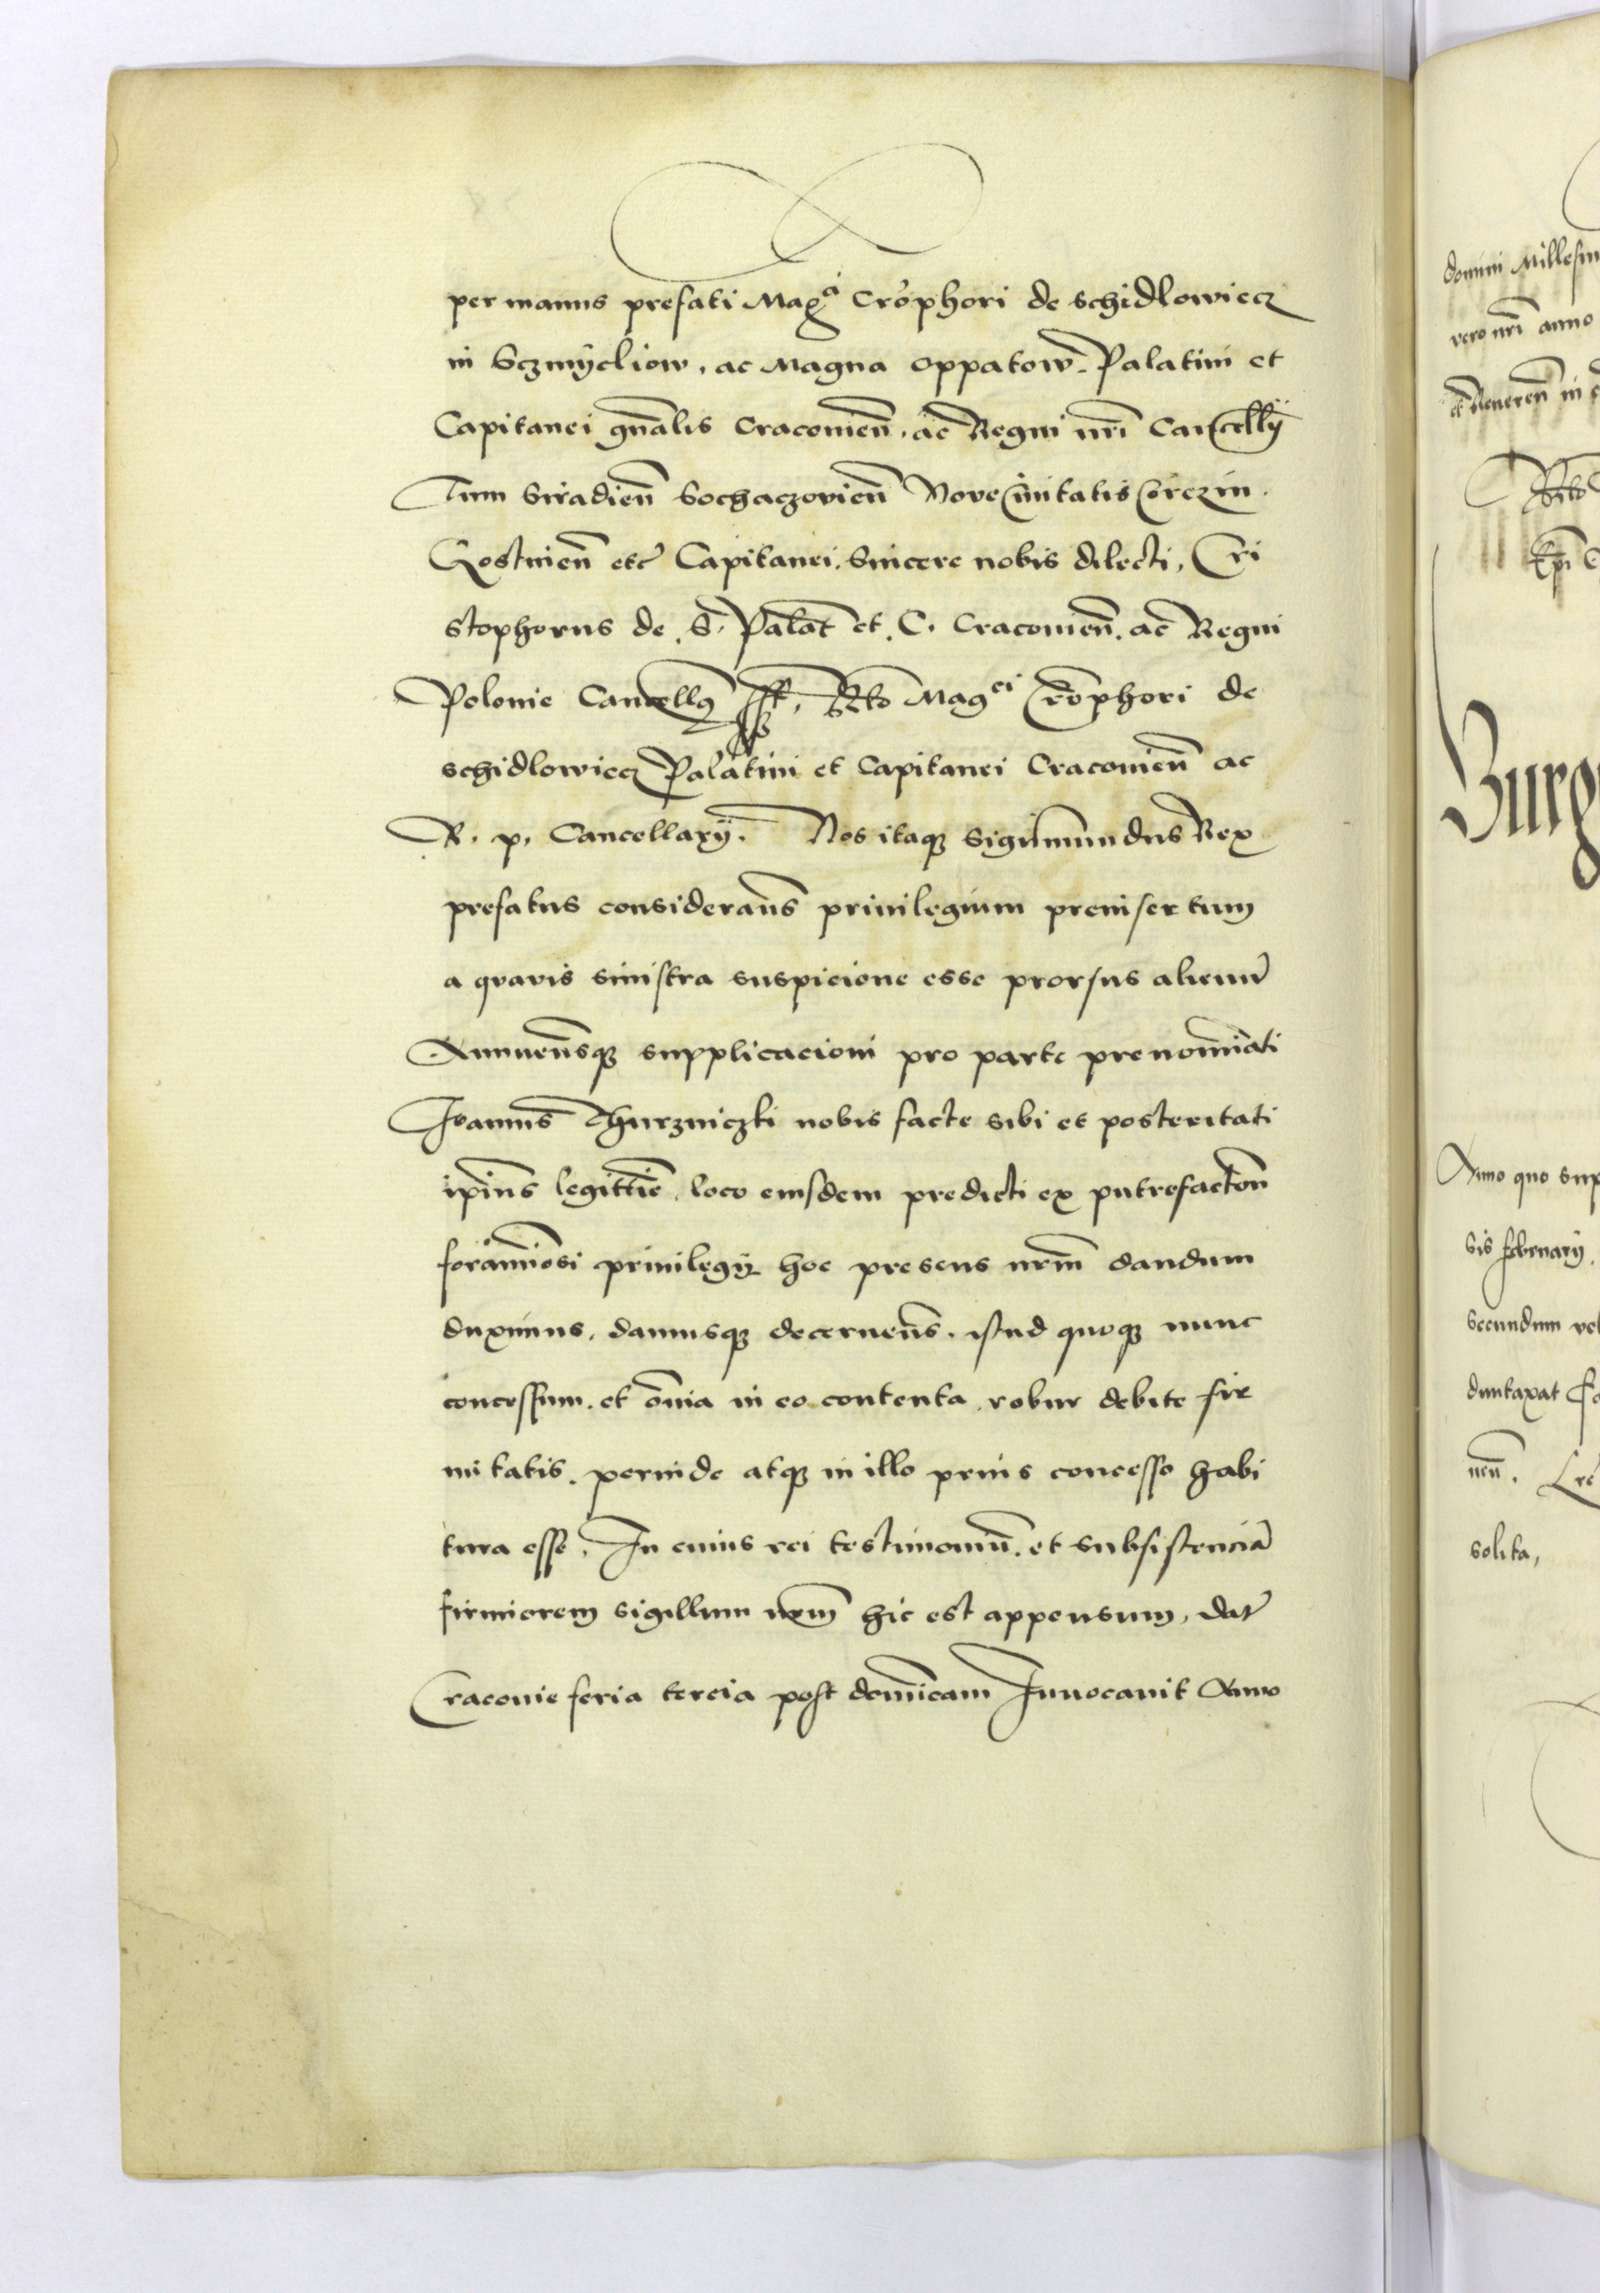 per manus prefati Mag^ci Cr̃ophori de Schidlowiecz
in Sczmyeliow, ac Magna Oppatow̃. Palatini et
Capitanei gñalis Cracouieñ. ac Regni nr̃i Cancellỹ
Tum Siradieñ Sochaczouieñ Noue Ciuitatis Corczin.
Gostinieñ etc̃ Capitanei. Sincere nobis dilecti. Cri
stophorus de. S. Palat̃ et. C. Cracouieñ. ac Regni
Polonie Cancell9 sst, Rl̃o Mag^ci Cr̃ophori de
Schidlowiecz Palatini et Capitanei Cracouieñ ac
R. p. Cancellarij. Nos itaq3 Sigismundus Rex
prefatus considerañs priuilegium preinsertum
a quauis sinistra suspicione esse prorsus alienũ
Annueñsq3 supplicacioni pro parte prenomĩati
Ioannis̃ Thurzniczki nobis facte sibi et posteritati
ip̃ius legittĩe. loco eiusdem predicti ex putrefactoñ
foramĩosi priuilegij hoc presens nr̃m dandum
duximus. damusq3 decerneñs. istud quoq3 nunc
concessum. et om̃ia in eo contenta. robur debite fir
mitatis. perinde atq3 in illo prius concesso habi
tura esse. In cuius rei testimoniũ. et subsistenciã
firmiorem sigillum nr̃m hic est appensum. Dat̃
Cracouie feria tercia post domĩcam Inuocauit Anno
domini Millesim
vero nr̃i anno
et Reueren̄ in
Rl̃o
Ep̃i
Burg
Anno quo sup
sis februarij.
secundum
duntaxat
solita,